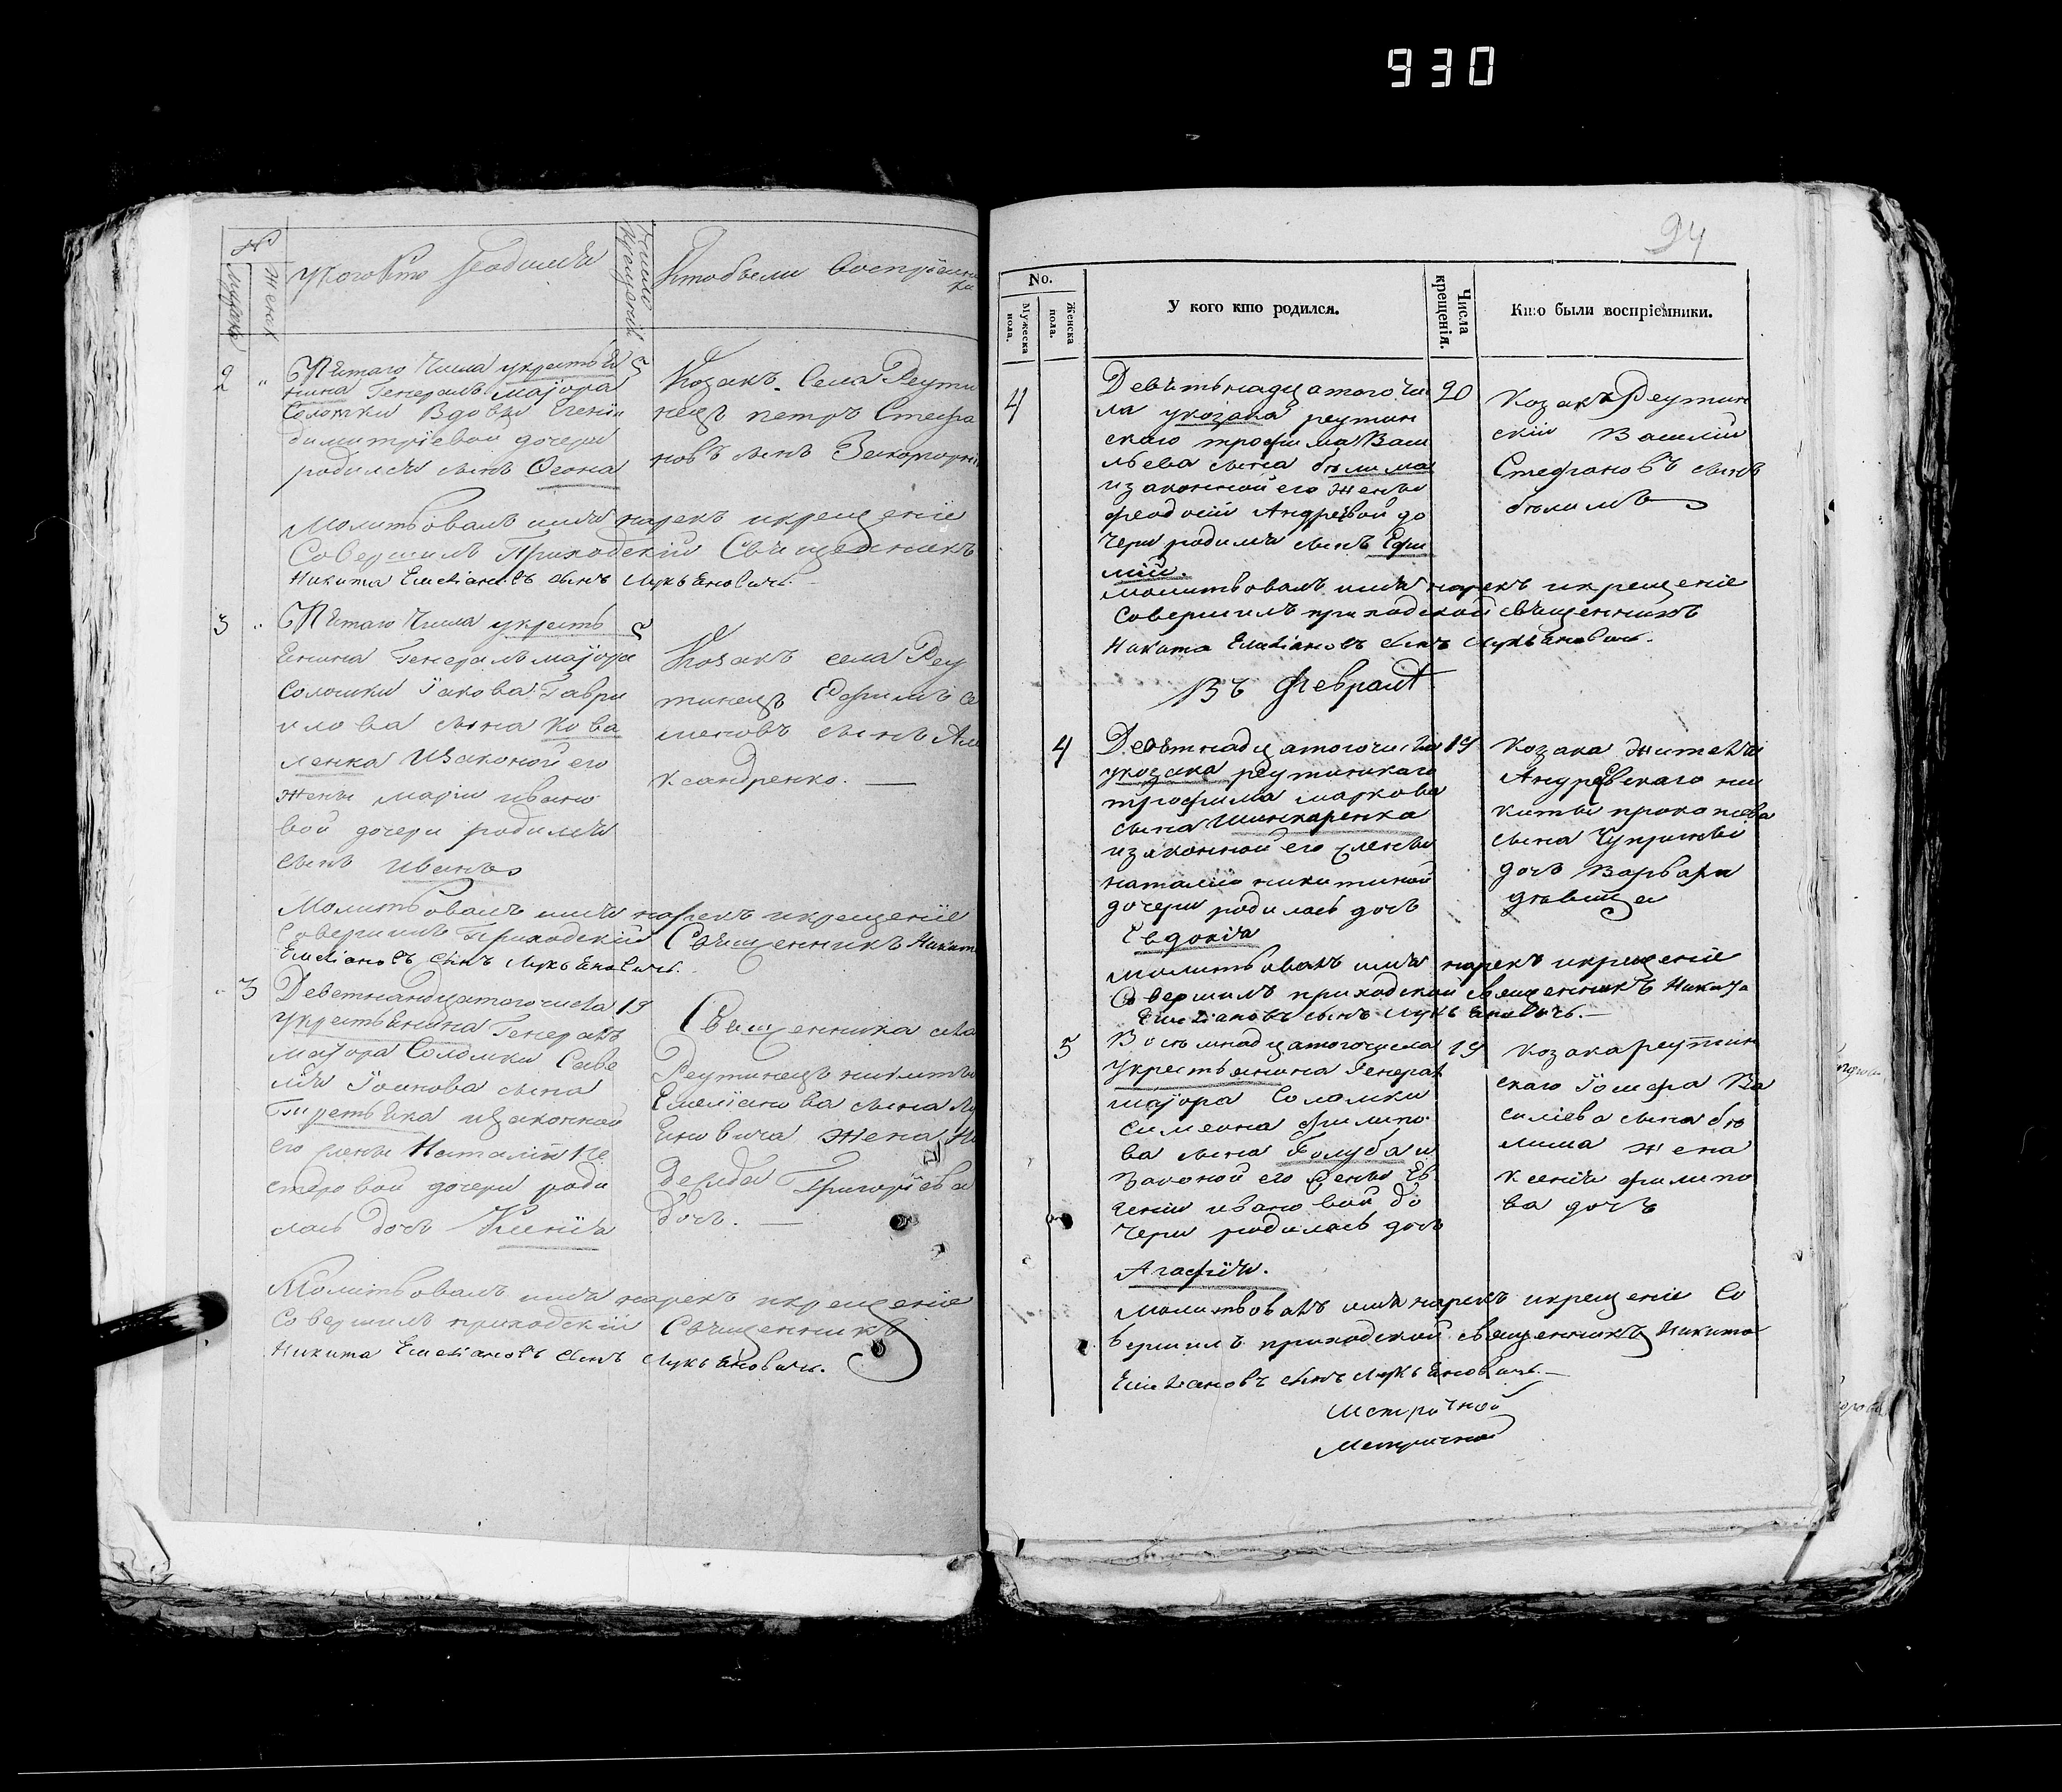 930
№
Мужск
Женск
у кого кто Родился
Число крещения
Кто были восприемни
ки
2
"
Пятаго Числа укрестья
5
нина Генералъ маіора
Соломки Вдовы Евгеніи
димитріевой дочери
родился сынъ Ѳеона
Козакъ Села Реути
нецъ петръ Стефа
новъ сынъ
Молитвовалъ имя нарекъ икрещеніе
Совершилъ Приходскій Священникъ
Никита Емеліановъ сынъ Лукьяновичъ.
3
"
Пятаго Числа укресть
5
янина Генералъ маіора
Соломки Іакова Гаври
илова сына Кова
ленка Изаконой его
жены маріи ивано
вой дочери родился
сынъ иванъ
Козакъ села Реу
тинецъ Ефимъ Се
меновъ сынъ Але
ксандренко.
Молитвовалъ имя нарекъ икрещеніе
Совершилъ Приходскій Священникъ Никита
Емеліановъ сынъ Лукьяновичъ.
"
3
Деветнандцатогочисла 19
укрестьянина Генералъ
маіора Соломки Саве
лія Іоанова сына
изаконной
его жены Наталіи Не
стеровой дочери роди
лась дочъ Ксенія
Священника села
Реутинецъ никиты
Емеліанова сына Лу
яновича жена
Григоріева
дочъ.
Молитвовалъ имя нарекъ икрещеніе
Совершилъ приходскій Священникъ
Никита Емеліановъ сынъ Лукьяновичъ.
94
No.
Мужеска пола.
Женска пола.
У кого кто родился.
Числа крещенія.
Кто были воспріемники.
4
Девятьнадцатого чи
20
сла укозака реутин
скаго трофима Васи
льева сына билима
изаконной его жены
феодосіи Андревой до
чери родился сынъ Ефи
мій.
Козакъ Реутин
скій Василій
Стефановъ сынъ
билимъ
молитвовалъ имя нарекъ икрещеніе
совершилъ приходской священникъ
Никита Емеліановъ сынъ Лукьяновичъ.
Въ Февралѣ
4
Девятнадцатогочисла 19
укозака реутинскаго
трофима маркова
сына Шинкаренка
изаконной его жены
наталіи никитиной
дочери родилась дочъ
Евдокія
Козака жителя
Андреевскаго ни
киты прокопіева
сына Чуприны
дочъ Варвара
девица
молитвовалъ имя нарекъ икрещеніе
Совершилъ приходской священникъ Никита
Емеліановъ сынъ Лукьяновичъ.
5
Восьмнадцатогочисла 19
укрестьянина Генералъ
маіора Соломки
Симеона филипо
ва сына Голуба и
Законой его жены Ев
геніи ивановой до
чери родилась дочъ
Агафія.
Козака реутин
скаго Іосифа Ва
силіева сына би
лима жена
Ксенія филипо
ва дочъ
молитвовалъ имя нарекъ икрещеніе Со
вершилъ приходской священникъ Никита
Емеліановъ сынъ Лукьяновичъ.
Метричной
Метричной